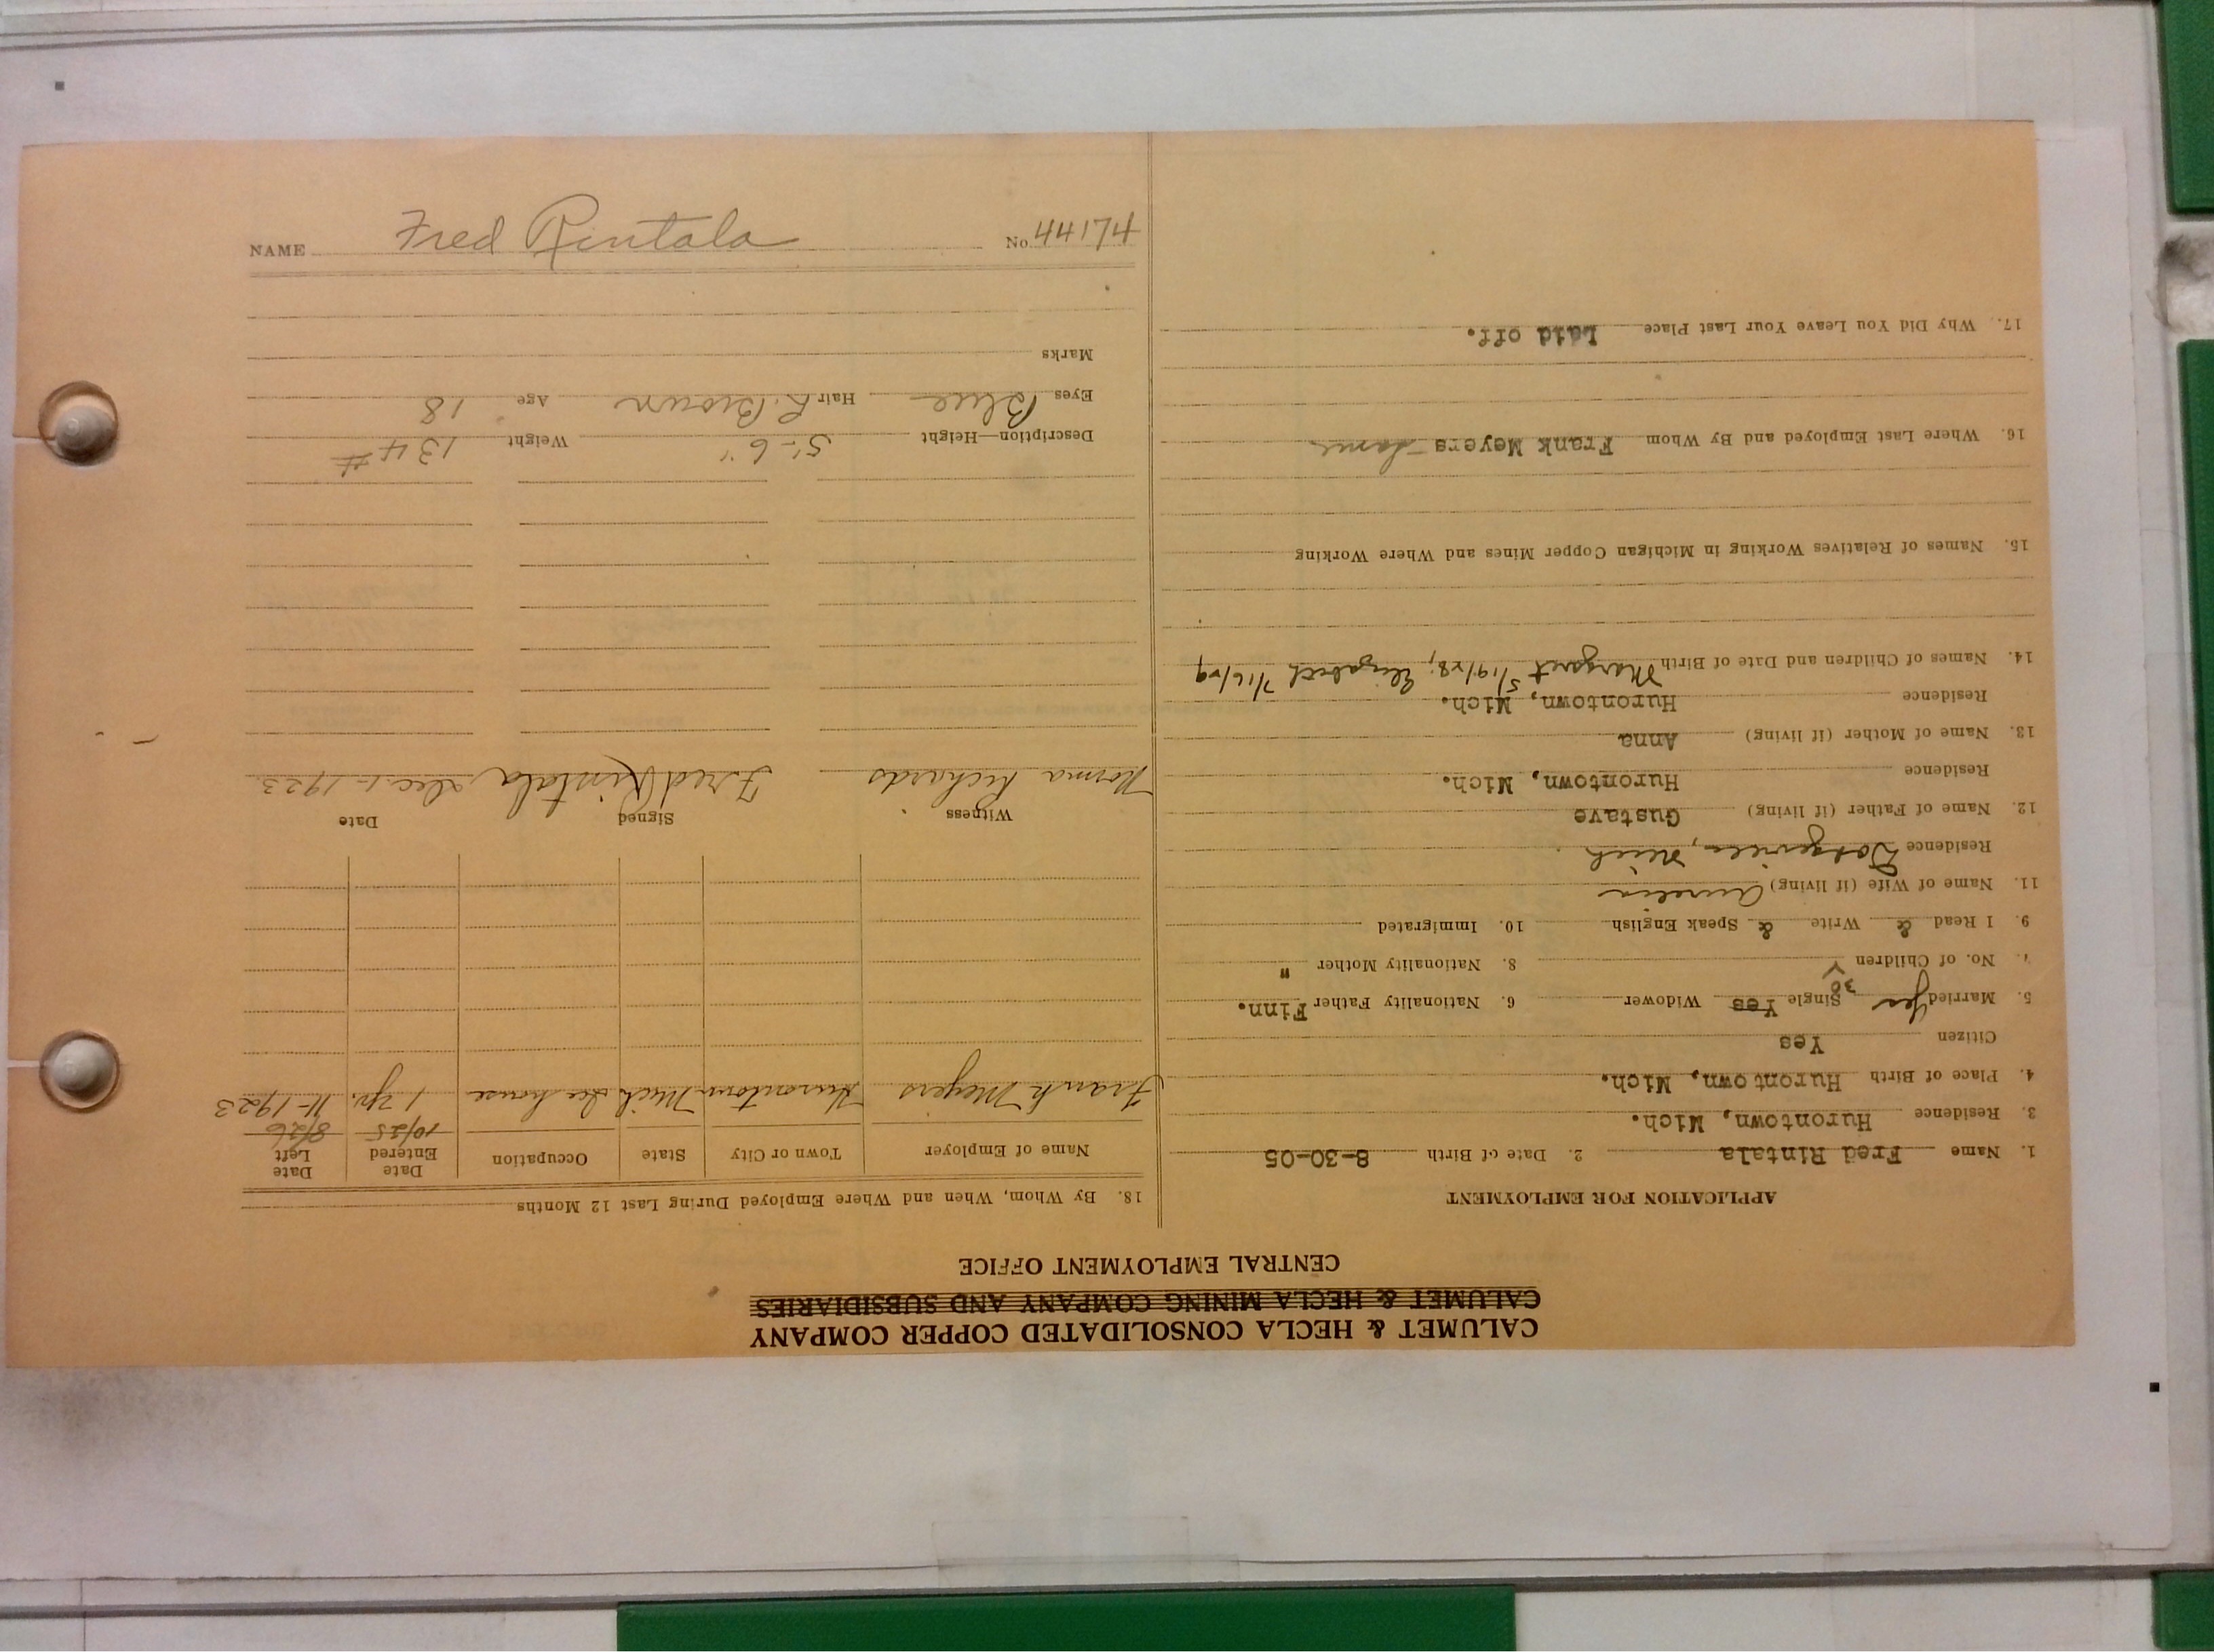 CALUMET & HECLA CONSOLIDATED COPPER COMPANY
CALUMET & HECLA MINING COMPANY AND SUBSIDIARIES
CENTRAL EMPLOYMENT OFFICE
APPLICATION FOR EMPLOYMENT
1. Name Fred Rintala 2. Date of Birth 8-30-05
3. Residence Hurontown, Mich.
4. Place of Birth Hurontown, Mich.
Citizen Yes
5. Married Yes Single Yes Widower 6. Nationality Father Finn.
7. No. of Children 8. Nationality Mother "
9. I Read & Write & Speak English 10. Immigrated
11. Name of Wife (if living) Aurelia
Residence Mich
12. Name of Father (if living) Gustave
Residence Hurontown, Mich.
13. Name of Mother (if living) Anna
Residence Hurontown, Mich.
14. Names of Children and Date of Birth Margaret 5/19/28; Elizabeth 7/16/29
15. Names of Relatives Working in Michigan Copper Mines and Where Working
16. Where Last Employed and By Whom Frank Meyers - same
17. Why Did You Leave Your Last Place Laid off.
18. By Whom, When and Where Employed During Last 12 Months
Name of Employer Town or City State Occupation Date Entered Date Left
10/25 8/26
Frank Meyers Hurontown Mich Ice house 1 yr. 11-1923
Witness Signed Date
Norma Richards Fred Rintala Dec. 1-1923
Description—Height 5'-6" Weight 134#
Eyes Blue Hair L. Brown Age 18
Marks
NAME Fred Rintala No. 44174